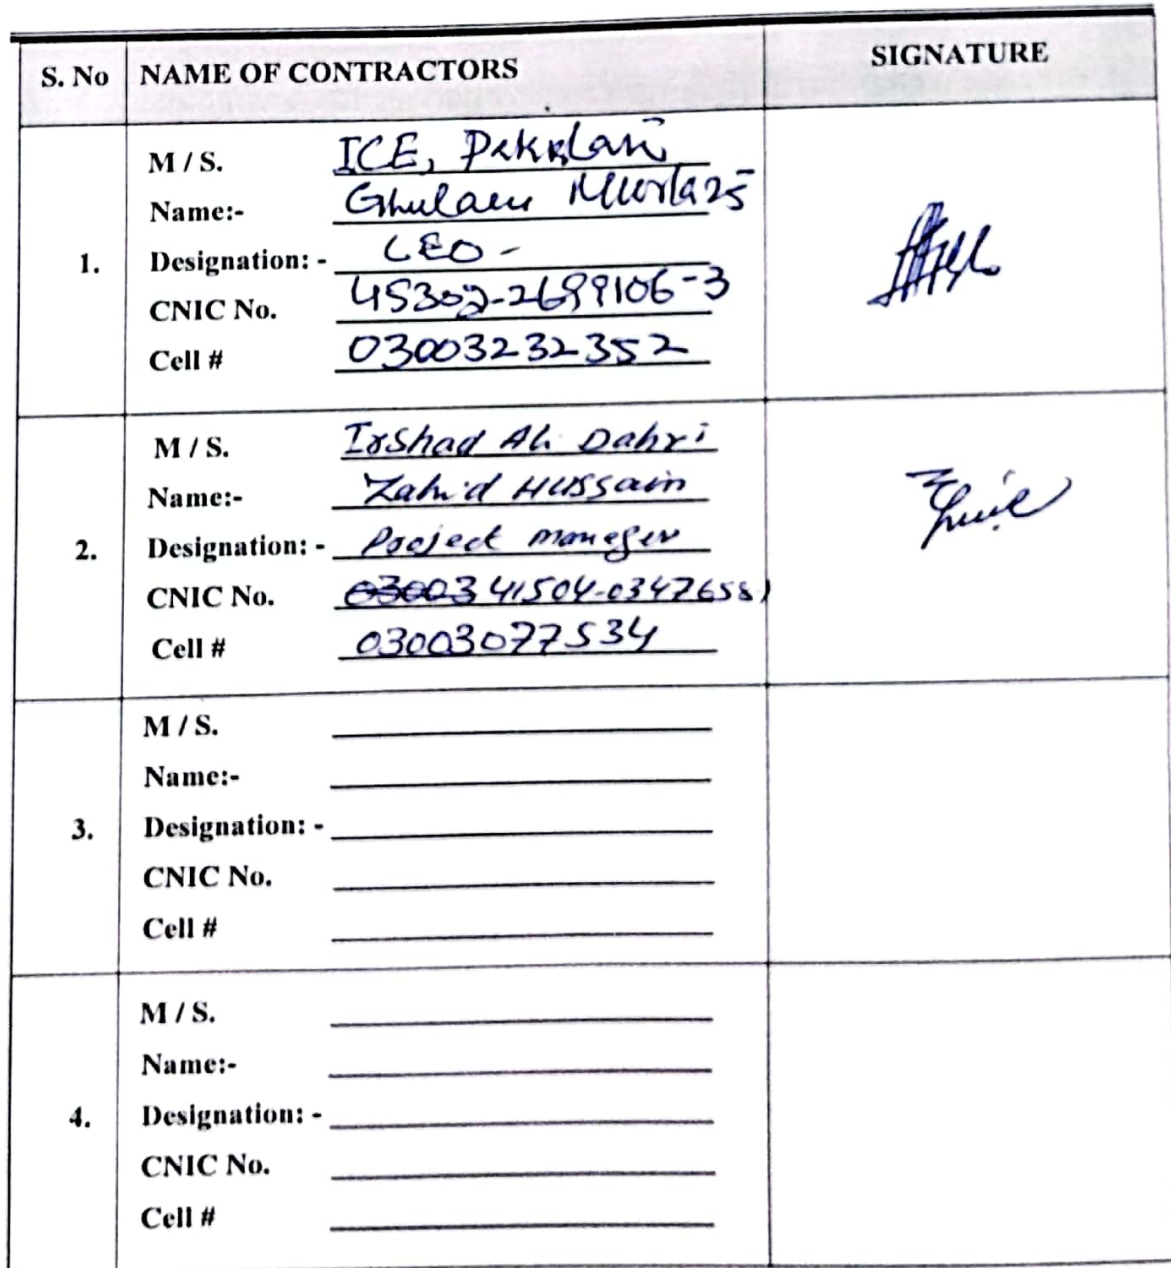 S. No NAME OF CONTRACTORS SIGNATURE
M / S. ICE, Pakistan
Name:- Ghulam Murtaza
1. Designation: - CEO -
CNIC No. 45302-2699106-3
Cell # 03003232352
M / S. Irshad Ali Dahri
Name:- Zahid Hussain
2. Designation: - Project maneger
CNIC No. 03003 41504-0347658)
Cell # 03003077534
M / S.
Name:-
3. Designation: -
CNIC No.
Cell #
M / S.
Name:-
4. Designation: -
CNIC No.
Cell #